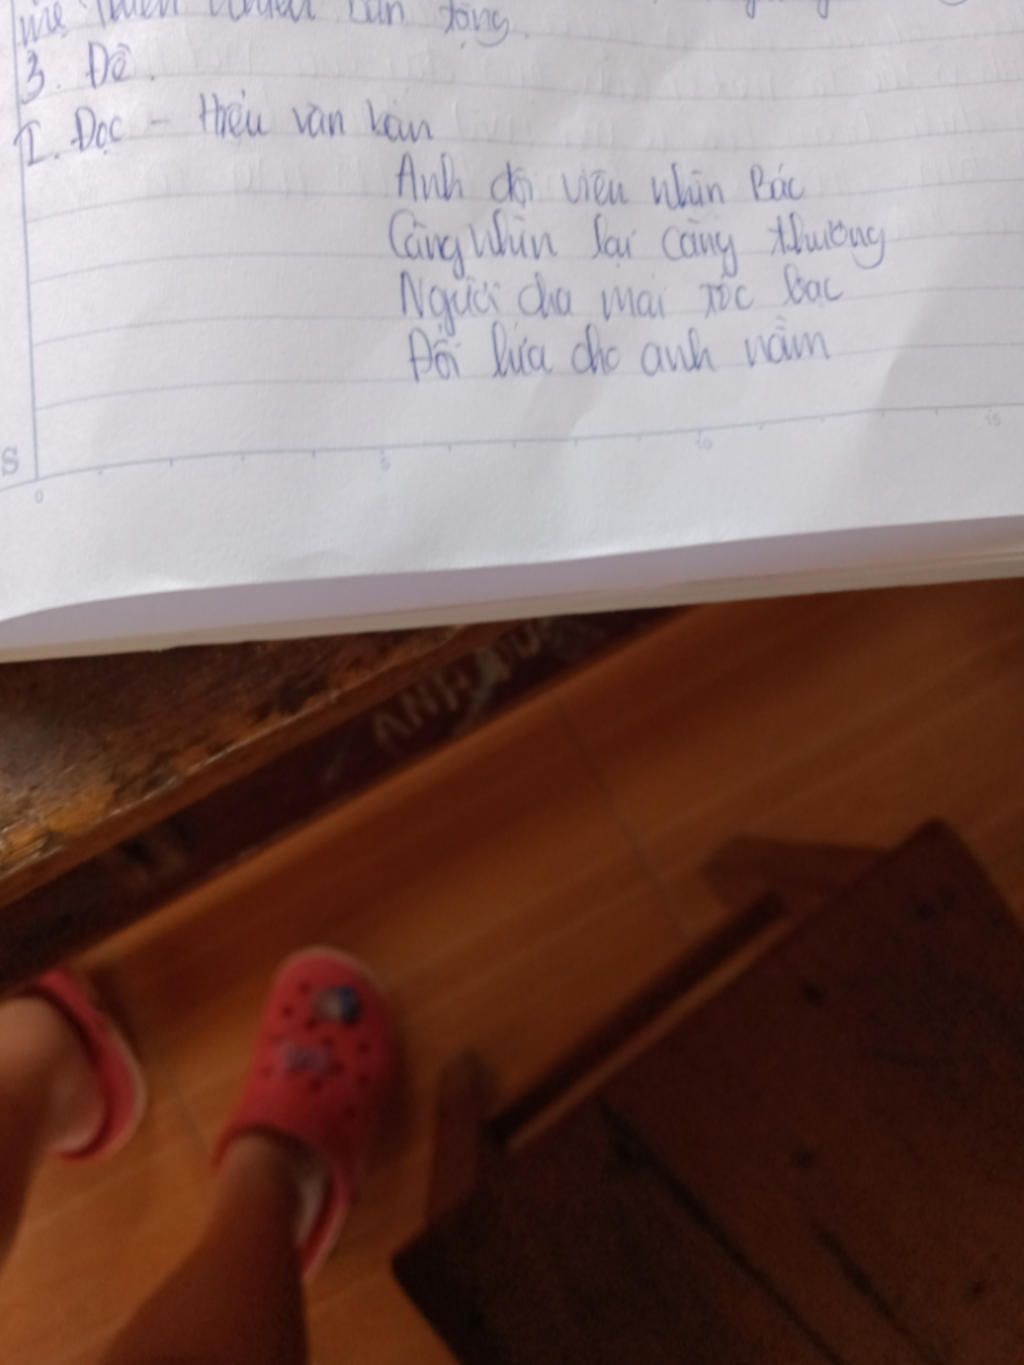 tộng.
3. Đề.
I. Đọc - hiểu văn bản
Anh đội viên nhìn Bác
Càng nhìn lại càng thương
Người cha mái tóc bạc
Đốt lửa cho anh nằm
S
0 5 10 15
ANH